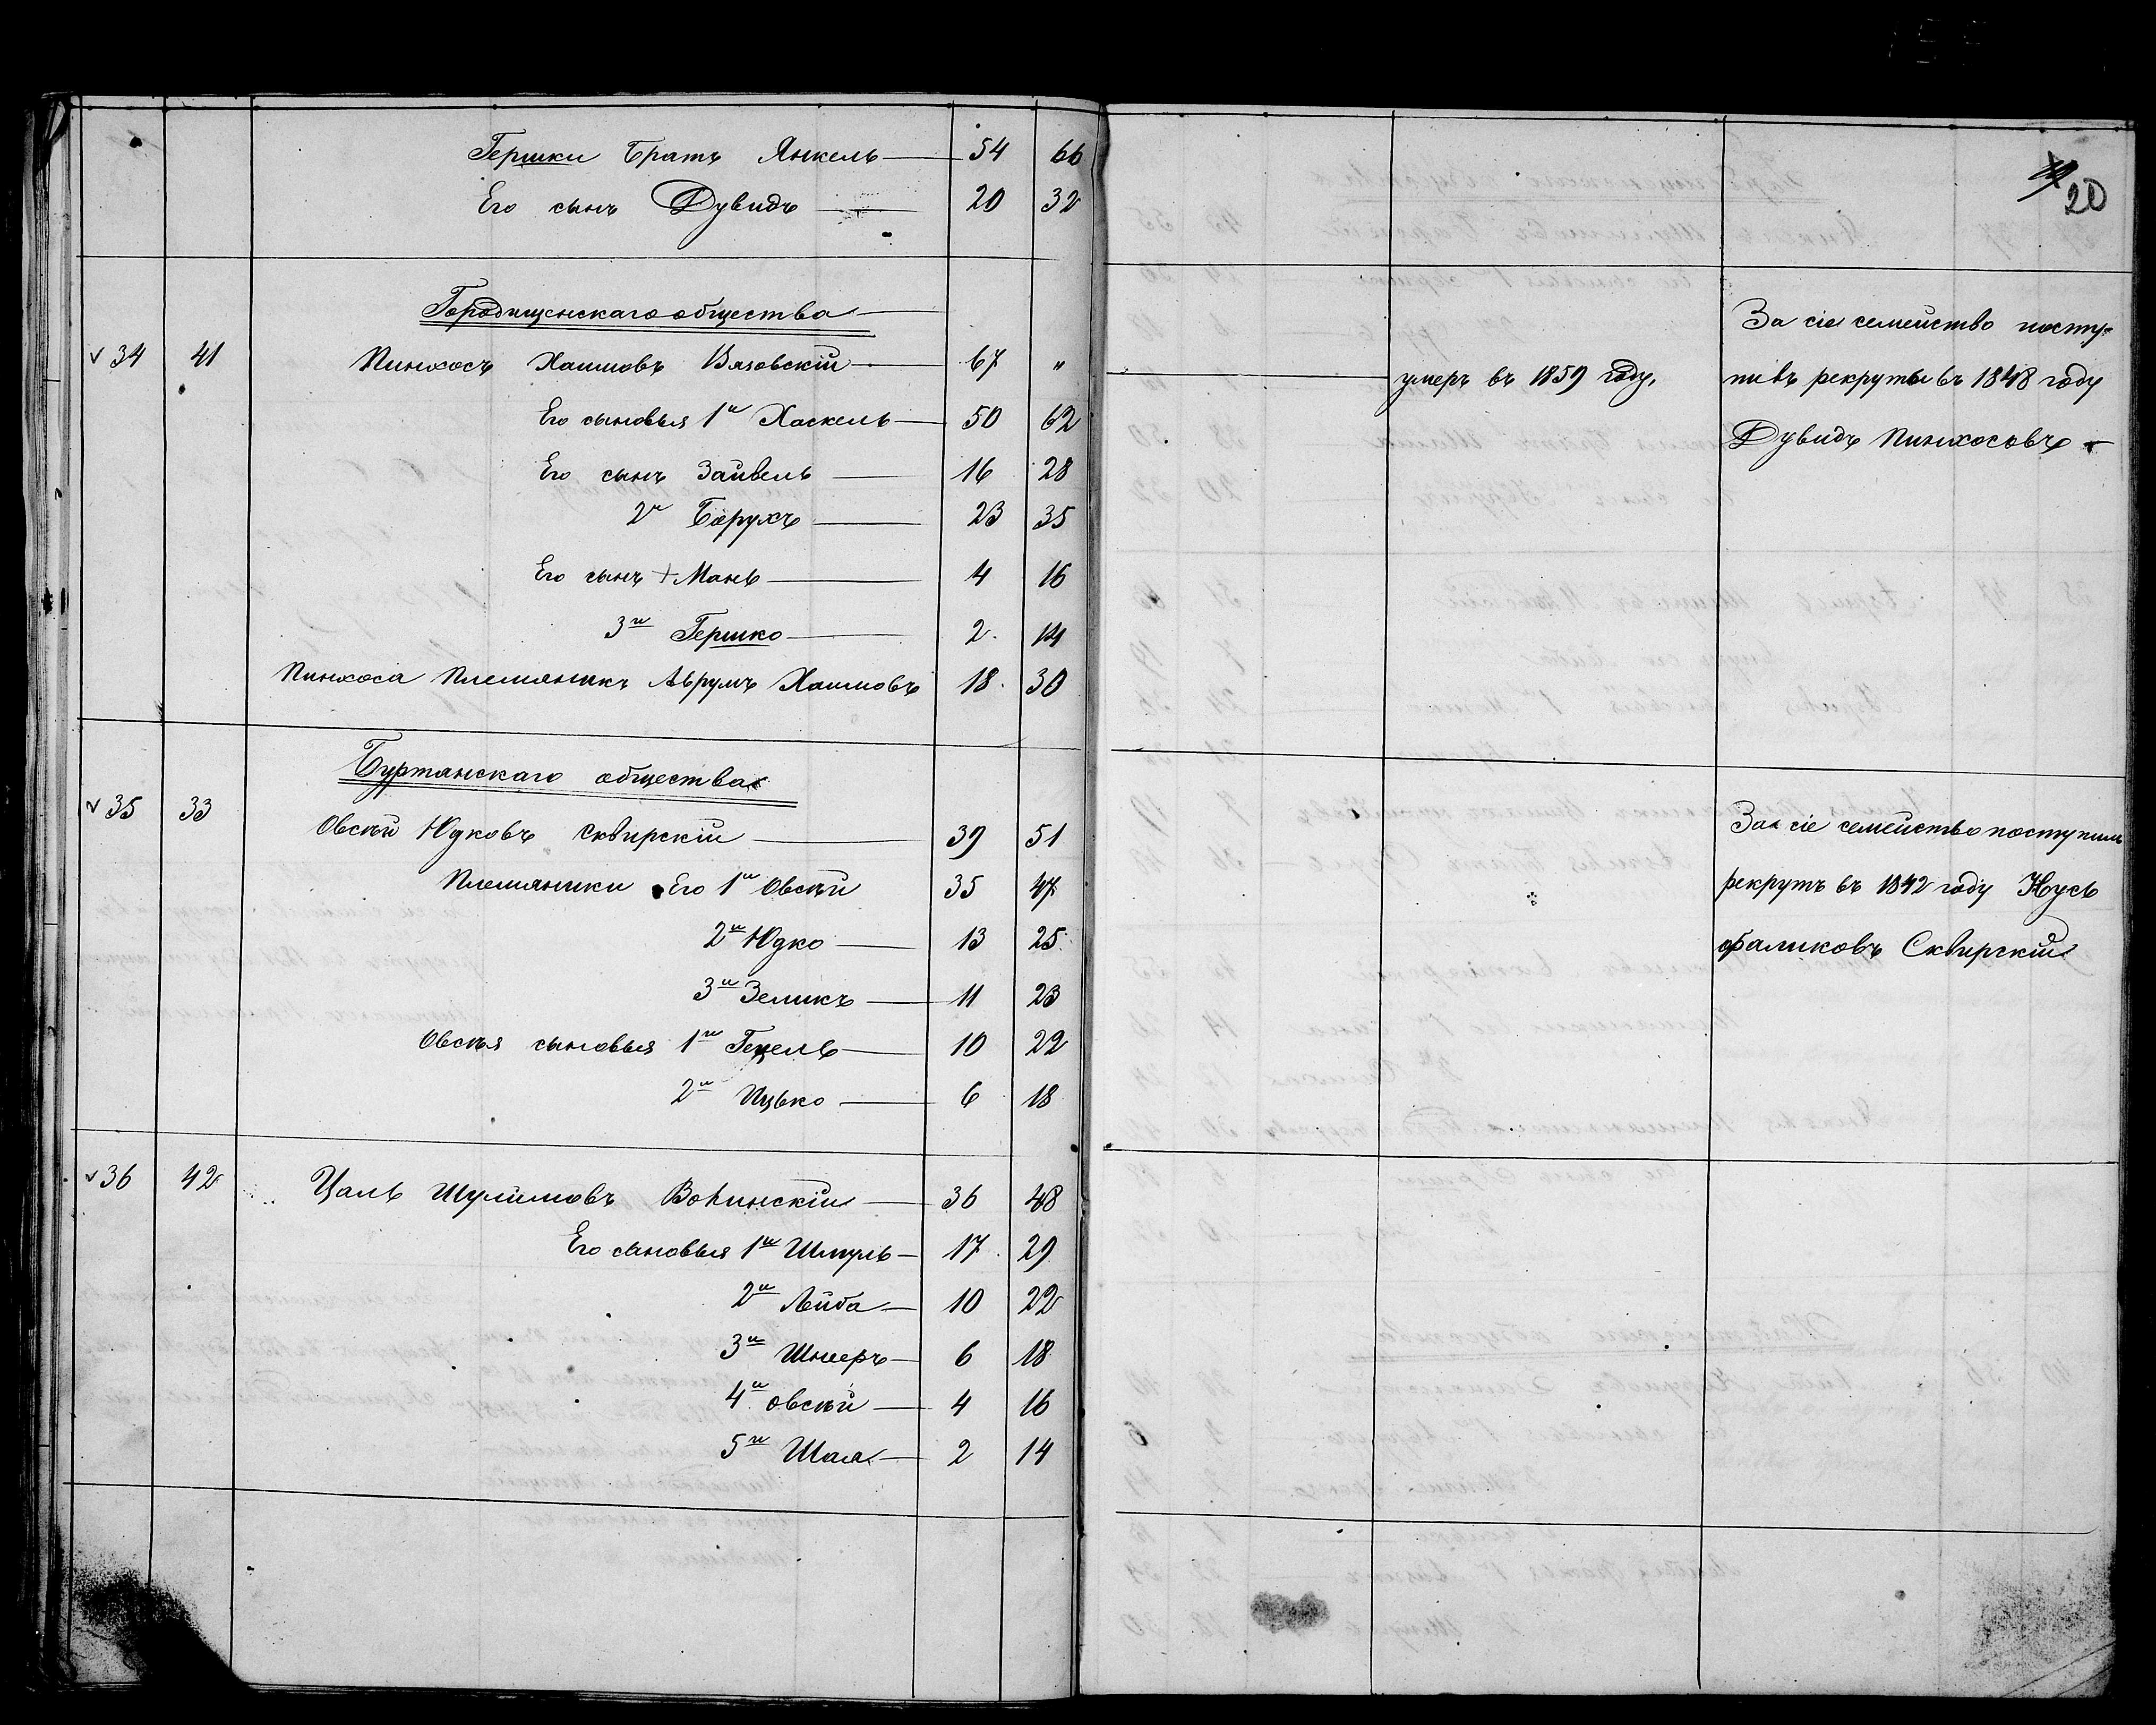 Гершки Братъ Янкель 54 66
Его сынъ Дувидъ 20 32
20
Городищенскаго общества
34 41 Пинхосъ Хаимовъ Вязовскій 67 „ умеръ въ 1859 году.
Его сыновья 1й Хаскель 50 62
Его сынъ Зайвель 16 28
2й Борухъ 23 35
Его сынъ + Мань 4 16
3й Гершко 2 14
Пинхоса Племяникъ Аврумъ Хаимовъ 18 30
За сіе семейство посту-
пилъ рекрутъ въ 1848 году
Дувидъ Пинхосовъ
Буртянскаго общества
35 33 Овсѣй Юдковъ Сквирскій 39 51
Племяники Его 1й Овсѣй 35 47
2й Юдко 13 25
3й Зеликъ 11 23
Овсѣя сыновья 1й Гецель 10 22
2й Ицько 6 18
За сіе семейство поступилъ
рекрутъ въ 1842 году Нусь
Фаликовъ Сквирскій
36 42 Цаль Шулимовъ 36 48
Его сыновья 1й Шмуль 17 29
2й Лейба 10 22
3й Шнеръ 6 18
4й Овсѣй 4 16
5й Шая 2 14